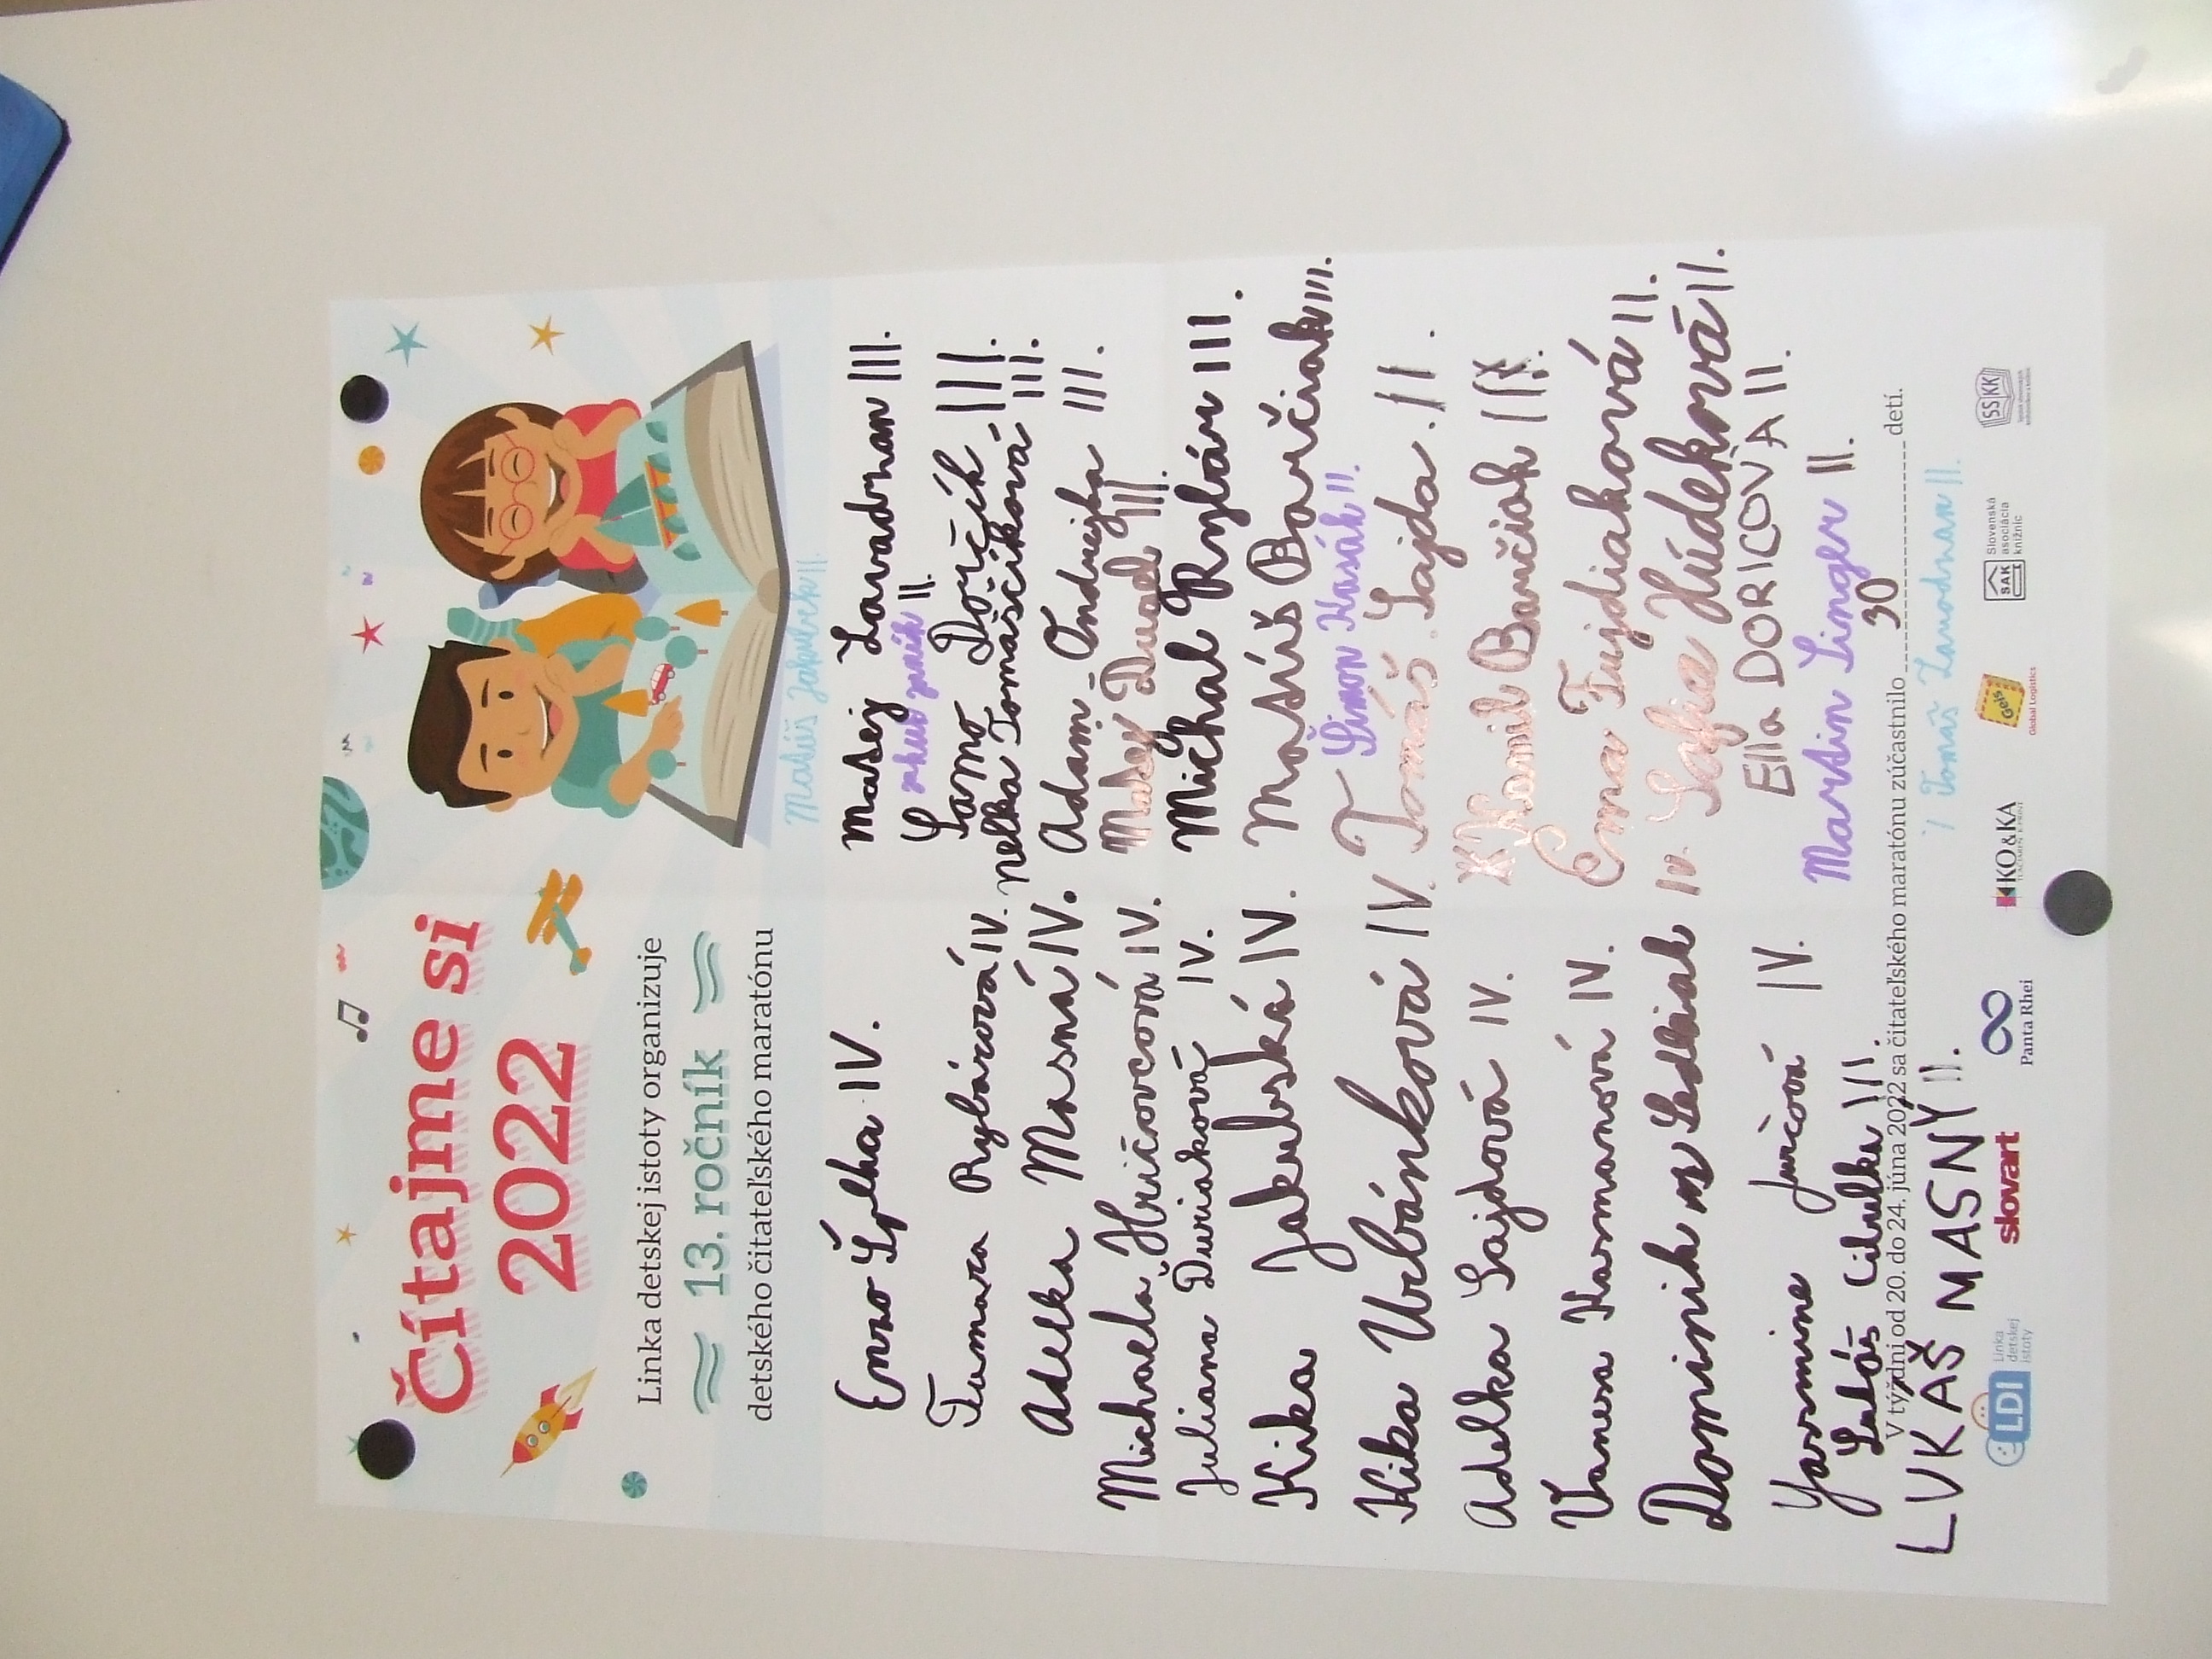 Čítajme si
2022
Linka detskej istoty organizuje
13. ročník
detského čitateľského maratónu
Matúš Jakubek II.
Emo Špilha IV.
Tamara Rybárová IV.
Adelka Masná IV.
Michaela Hričovcová IV.
Juliana Ďuriaková IV.
Kika Jakubská IV.
Kika Urbánková IV.
Adelka Šajdová IV.
Vanesa Kasmanová IV.
Dominik Sedliak IV.
Yasmine Juričová IV.
Cibulka III.
LUKÁŠ MASNÝ II.
Matej Zavadzan III.
II.
Samo Dorčík III.
Nelka Tomaščíková III.
Adam Andrejka III.
Matej III.
Michal Rybár III.
Matúš Barčiak III.
Šimon Kasák II.
Tomáš Šajda II.
Kamil Barčiak II.
Ema Fujdiaková II.
Sofia Húdeková II.
Ella DORICOVÁ II.
Martin Singer II.
V týždni od 20. do 24. júna 2022 sa čitateľského maratónu zúčastnilo 30 detí.
Tomáš II.
LDI Linka detskej istoty
slovart
Panta Rhei
KO&KA
Geis
Global Logistics
SAK Slovenská asociácia knižníc
SSKK